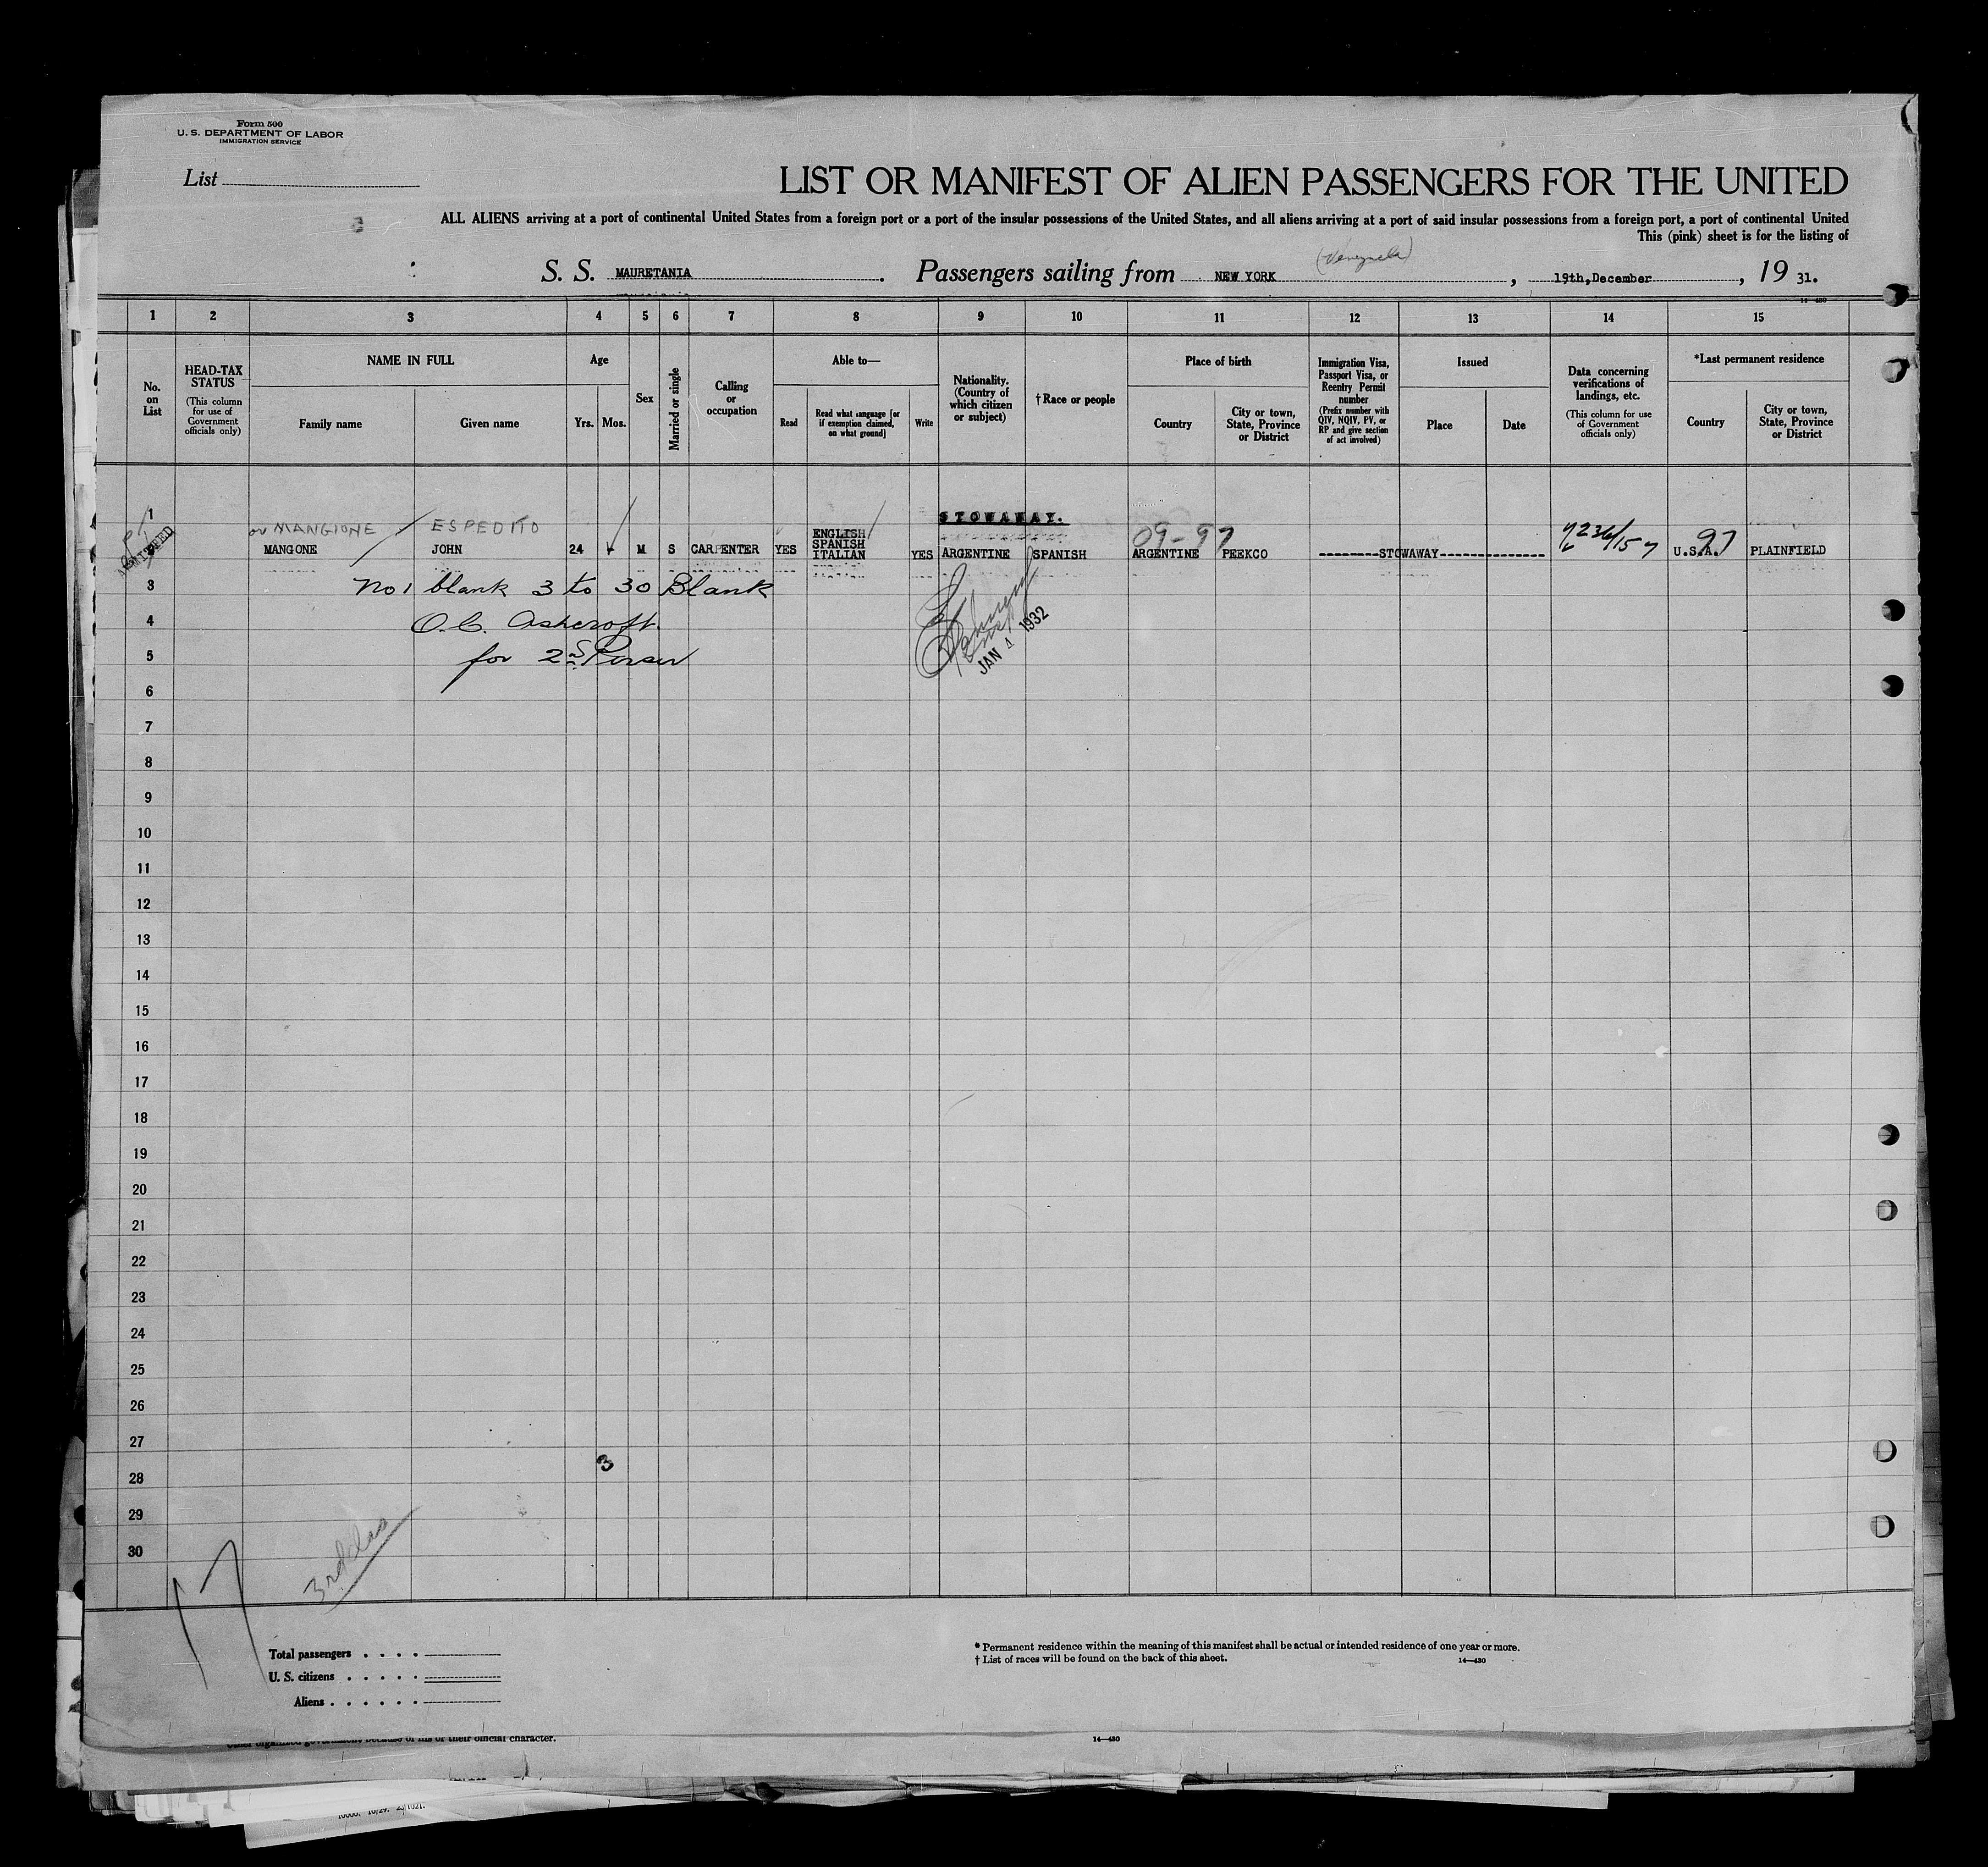 Form 500
U. S. DEPARTMENT OF LABOR
IMMIGRATION SERVICE
List
LIST OR MANIFEST OF ALIEN PASSENGERS FOR THE UNITED
ALL ALIENS arriving at a port of continental United States from a foreign port or a port of the insular possessions of the United States, and all aliens arriving at a port of said insular possessions from a foreign port, a port of continental United
This (pink) sheet is for the listing of
(Venezuela)
S. S. MAURETANIA. Passengers sailing from NEW YORK, 19th,December, 19 31.
14—430
1 2 3 4 5 6 7 8 9 10 11 12 13 14 15
No. on List
HEAD-TAX STATUS
(This column for use of Government officials only)
NAME IN FULL
Family name
Given name
Age
Yrs.
Mos.
Sex
Married or single
Calling or occupation
Able to—
Read
Read what language [or if exemption claimed, on what ground]
Write
Nationality. (Country of which citizen or subject)
†Race or people
Place of birth
Country
City or town, State, Province or District
Immigration Visa, Passport Visa, or Reentry Permit number
(Prefix number with QIV, NQIV, PV, or RP and give section of act involved)
Issued
Place
Date
Data concerning verifications of landings, etc.
(This column for use of Government officials only)
*Last permanent residence
Country
City or town, State, Province or District
1 STOWAWAY.
or MANGIONE ESPEDITO 09-97 97
MANGONE JOHN 24 M S CARPENTER YES ENGLISH SPANISH ITALIAN YES ARGENTINE SPANISH ARGENTINE PEEKCO --------STOWAWAY--------------- U.S.A. PLAINFIELD
3 No 1 blank 3 to 30 Blank
4 O.C. Ashcroft
JAN 1 1932
5 for 2nd Purser
6
7
8
9
10
11
12
13
14
15
16
17
18
19
20
21
22
23
24
25
26
27
3
28
29
30
3rd class
17
Total passengers . . . .
U. S. citizens . . . . .
Aliens . . . . . .
* Permanent residence within the meaning of this manifest shall be actual or intended residence of one year or more.
† List of races will be found on the back of this sheet.
14—430
other organized government because of his or their official character.
14—430